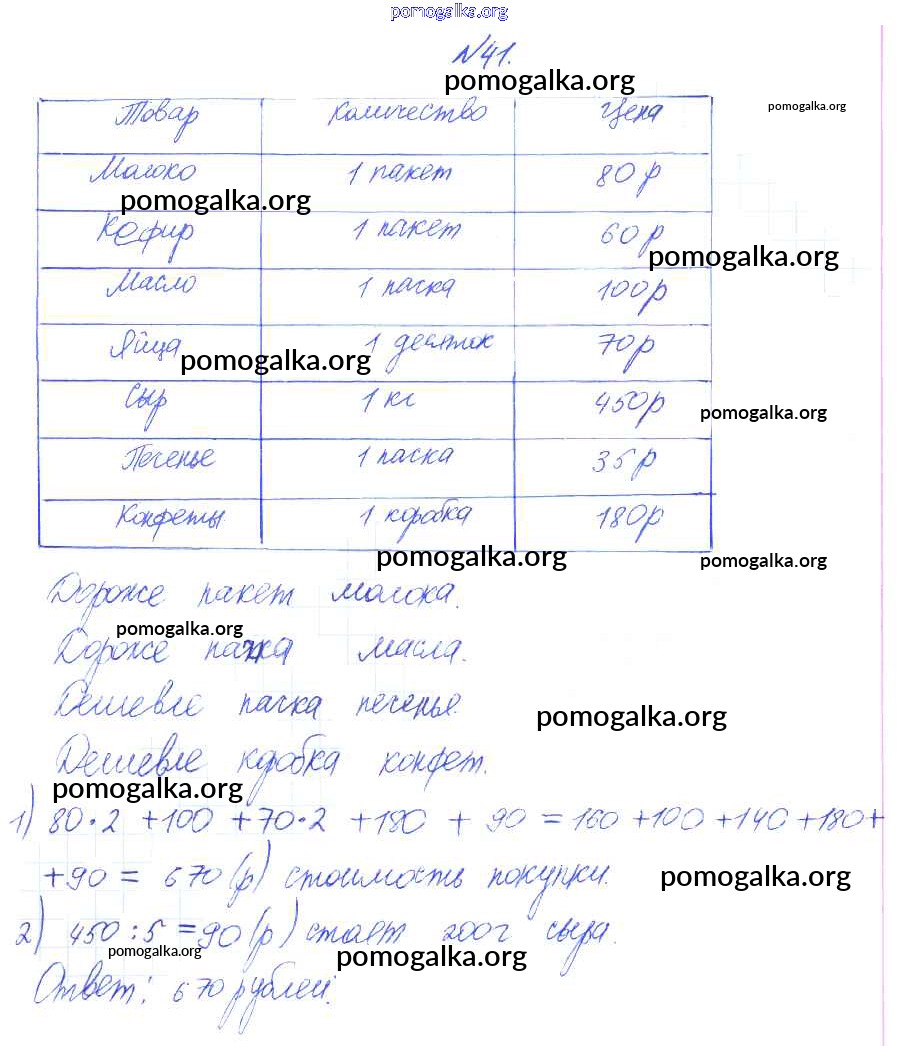 pomogalka.org
№41.
pomogalka.org
Товар Количество Цена pomogalka.org
Молоко 1 пакет 80 р
pomogalka.org
Кефир 1 пакет 60 р
pomogalka.org
Масло 1 пачка 100 р
Яйца 1 десяток 70 р
pomogalka.org
Сыр 1 кг 450 р
pomogalka.org
Печенье 1 пачка 35 р
Конфеты 1 коробка 180 р
pomogalka.org pomogalka.org
Дороже пакет молока.
pomogalka.org
Дороже пачка масла.
Дешевле пачка печенья.
pomogalka.org
Дешевле коробка конфет.
pomogalka.org
1) 80·2 +100 +70·2 +180 + 90 = 160 +100 +140 +180+
+90 = 670 (р) стоимость покупки.
pomogalka.org
2) 450 : 5 = 90 (р) стоит 200г сыра.
pomogalka.org pomogalka.org
Ответ: 670 рублей.